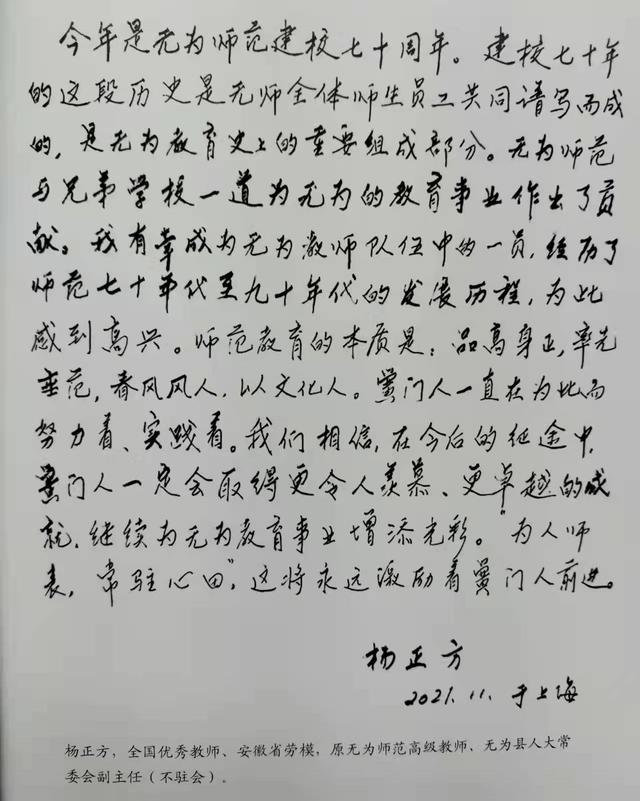 今年是无为师范建校七十周年。建校七十年
的这段历史是无师全体师生员工共同谱写而成
的，是无为教育史上的重要组成部分。无为师范
与兄弟学校一道为无为的教育事业作出了贡
献。我有幸成为无为教师队伍中的一员，经历了
师范七十年代至九十年代的发展历程，为此
感到高兴。师范教育的本质是：品高身正，率先
垂范，春风风人，以文化人。黉门人一直在为此而
努力着、实践着。我们相信，在今后的征途中，
黉门人一定会取得更令人羡慕、更卓越的成
就，继续为无为教育事业增添光彩。“为人师
表，常驻心田”，这将永远激励着黉门人前进。
杨正方
2021.11.于上海
杨正方，全国优秀教师、安徽省劳模，原无为师范高级教师、无为县人大常
委会副主任（不驻会）。